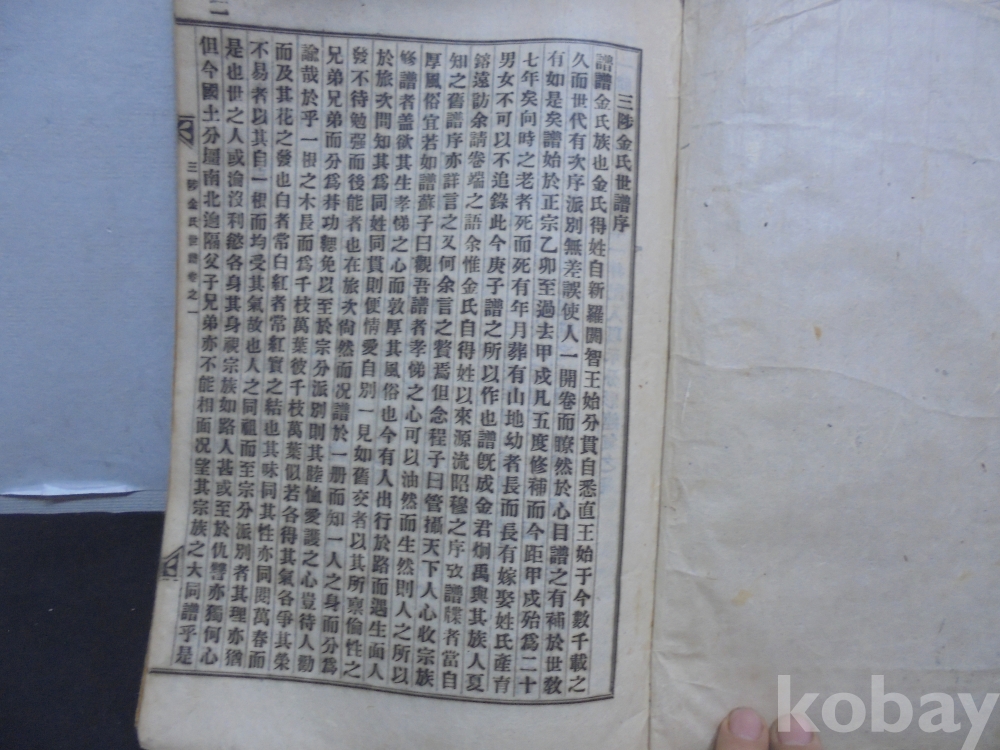 三陟金氏世譜序
譜譜金氏族也金氏得姓自新羅閼智王始分貫自悉直王始于今數千載之
久而世代有次序派別無差誤使人一開卷而瞭然於心目譜之有補於世敎
有如是矣譜始於正宗乙卯至過去甲戍凡五度修補而今距甲戍殆爲二十
七年矣向時之老者死而死有年月葬有山地幼者長而長有嫁娶姓氏產育
男女不可以不追錄此今庚子譜之所以作也譜旣成金君炯禹與其族人夏
鎔遠訪余請卷端之語余惟金氏自得姓以來源流昭穆之序攷譜牒者當自
知之舊譜序亦詳言之又何余言之贅焉但念程子曰管攝天下人心收宗族
厚風俗宜若如譜蘇子曰觀吾譜者孝悌之心可以油然而生然則人之所以
修譜者盖欲其生孝悌之心而敦厚其風俗也今有人出行於路而遇生面人
於旅次問知其爲同姓同貫則便情愛自別一見如舊交者以其所禀倫性之
發不待勉强而後能者也在旅次尙然而况譜於一册而知一人之身而分爲
兄弟兄弟而分爲朞功緦免以至於宗分派別則其睦恤愛護之心豈待人勸
諭哉於乎一根之木長而爲千枝萬葉彼千枝萬葉似若各得其氣各爭其榮
而及其花之發也白者常白紅者常紅實之結也其味同其性亦同閱萬春而
不易者以其自一根而均受其氣故也人之同祖而至宗分派別者其理亦猶
是也世之人或淪沒利慾各身其身視宗族如路人甚或至於仇讐亦獨何心
但今國土分疆南北逈隔父子兄弟亦不能相面况望其宗族之大同譜乎是
三陟金氏世譜卷之一
一
kobay